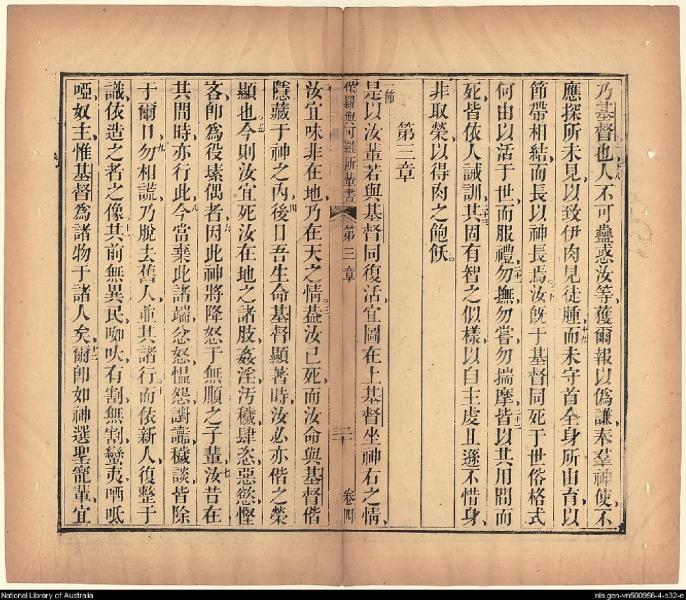 乃基督也人不可蠱惑汝等獲爾報以偽謙奉羣神使不
應探所未見以致伊肉見徒腫而未守首全身所由育以
節帶相結而長以神長焉汝既于基督同死于世俗格式
何由以活于世而服禮勿撫勿嘗勿揣摩皆以其用間而
死皆依人誡訓其固有智之似樣以自主虔且遜不惜身
非取榮以得肉之飽飫
第三章
節
是以汝輩若與基督同復活宜圖在上基督坐神右之情
保羅與可羅所輩書 第三章 卷四
汝宜味非在地乃在天之情葢汝已死而汝命與基督偕
隱藏于神之內後日吾生命基督顯著時汝必亦偕之榮
顯也今則汝宜死汝在地之諸肢姦淫汚穢肆恣惡慾慳
吝卽為役瑧偶者因此神將降怒于無順之子輩汝昔在
其間時亦行此今當棄此諸端忿怒慍怨謗讟穢談皆除
于爾口勿相謊乃脫去舊人並其諸行而依新人復整于
識依造之者之像其前無異民啝吠有割無割蠻夷哂呧
啞奴主惟基督為諸物于諸人矣爾卽如神選聖寵輩宜
National Library of Australia
nla.gen-vn500956-4-s32-e